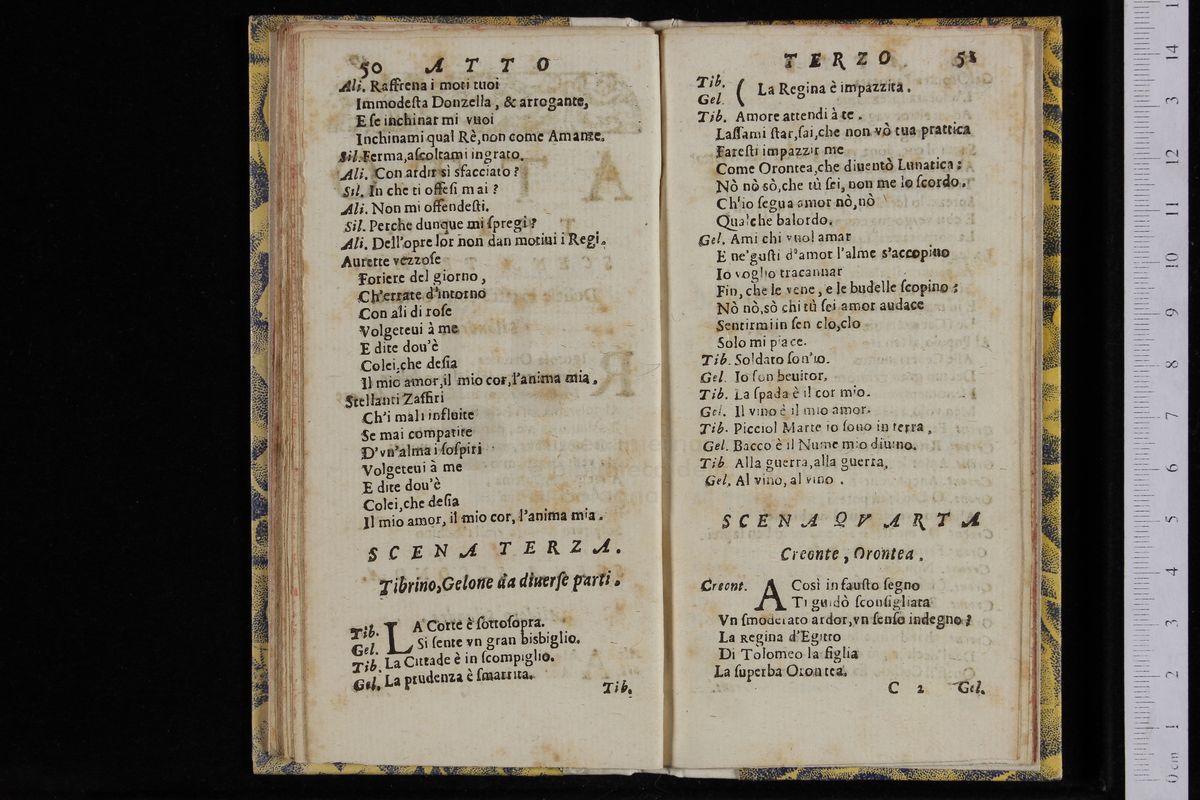 50 ATTO
Ali. Raffrena i moti tuoi
Immodeſta Donzella, & arrogante,
E ſe inchinar mi vuoi
Inchinami qual Rè, non come Amante.
Sil. Ferma, aſcoltami ingrato.
Ali. Con ardir sì sfacciato?
Sil. In che ti offeſi mai?
Ali. Non mi offendeſti.
Sil. Perche dunque mi ſpregi?
Ali. Dell'opre lor non dan motiui i Regi.
Aurette vezzoſe
Foriere del giorno,
Ch'errate d'intorno
Con ali di roſe
Volgeteui à me
E dite dou'è
Colei, che deſia
Il mio amor, il mio cor, l'anima mia.
Stellanti Zaffiri
Ch'i mali influite
Se mai compatite
D'vn'alma i ſoſpiri
Volgeteui à me
E dite dou'è
Colei, che deſia
Il mio amor, il mio cor, l'anima mia.
SCENA TERZA.
Tibrino, Gelone da diuerſe parti.
Tib. LA Corte è ſottoſopra.
Gel. Si ſente vn gran bisbiglio.
Tib. La Cittade è in ſcompiglio.
Gel. La prudenza è ſmarrita.
Tib.
TERZO. 51
Tib.
Gel. ( La Regina è impazzita.
Tib. Amore attendi à te.
Laſſami ſtar, ſai, che non vò tua prattica
Fareſti impazzir me
Come Orontea, che diuentò Lunatica:
Nò nò sò, che tù ſei, non me lo ſcordo.
Ch'io ſegua amor nò, nò
Qualche balordo.
Gel. Ami chi vuol amar
E ne'guſti d'amor l'alme s'accopino
Io voglio tracannar
Fin, che le vene, e le budelle ſcopino:
Nò nò, sò chi tù ſei amor audace
Sentirmi in ſen clo, clo
Solo mi piace.
Tib. Soldato ſon'io.
Gel. Io ſon beuitor.
Tib. La ſpada è il cor mio.
Gel. Il vino è il mio amor.
Tib. Picciol Marte io ſono in terra,
Gel. Bacco è il Nume mio diuino.
Tib. Alla guerra, alla guerra,
Gel. Al vino, al vino.
SCENA QVARTA
Creonte, Orontea.
Creont. A Così infauſto ſegno
Ti guidò ſconſigliata
Vn ſmoderato ardor, vn ſenſo indegno?
La Regina d'Egitto
Di Tolomeo la figlia
La ſuperba Orontea.
C 2 Gel.